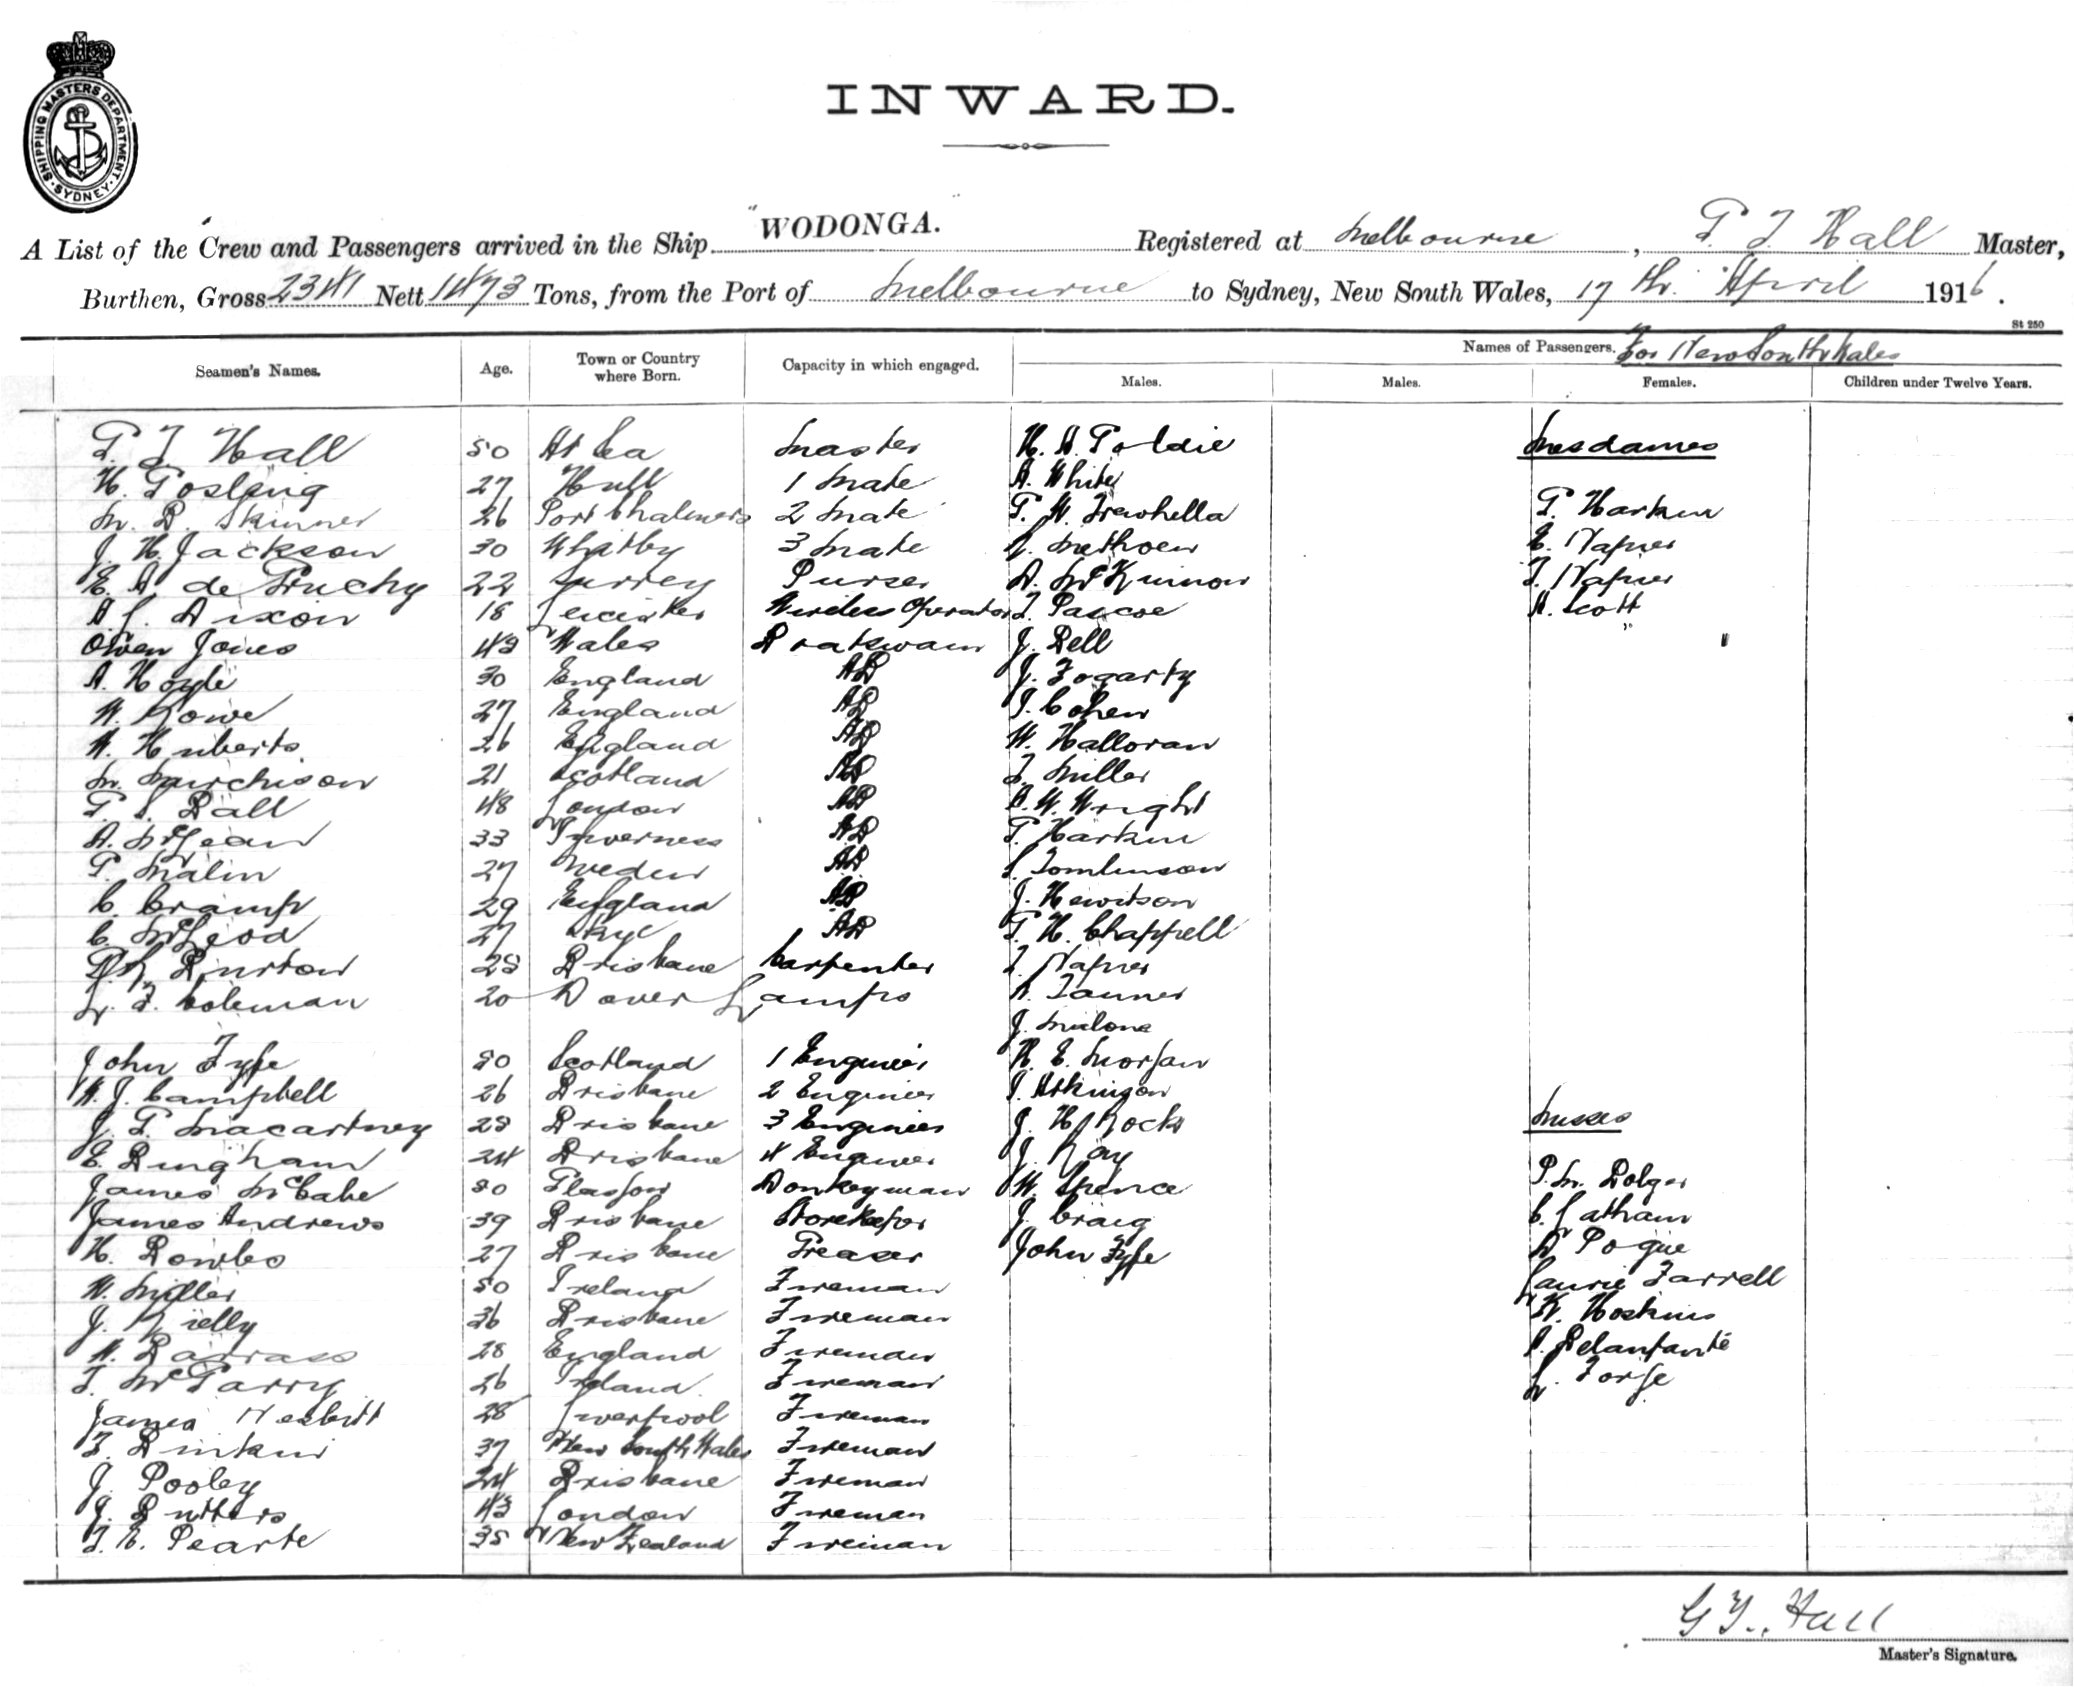 SHIPPING MASTERS DEPARTMENT SYDNEY
INWARD.
A List of the Crew and Passengers arrived in the Ship "WODONGA." Registered at Melbourne, G. T. Hall Master,
Burthen, Gross 2341 Nett 1473 Tons, from the Port of Melbourne to Sydney, New South Wales, 17 th. April 1916.
St 250
Seamen's Names. Age. Town or Country where Born. Capacity in which engaged. Names of Passengers. For New South Wales
Males. Males. Females. Children under Twelve Years.
G. T Hall 50 At Sea Master H. A. Goldie Mesdames
H. Gosling 27 Hull 1 Mate A. White
M. B. Skinner 26 Port Chalmers 2 Mate G. W. Trewhella G. Harkin
J. H. Jackson 30 Whitby 3 Mate Methven E. Napier
E. A. de Gruchy 22 Surrey Purser A. McKinnon T. Napier
A. L. Dixon 18 Leicester Wireless Operator T. Pascoe A. Scott
Owen Jones 43 Wales Boatswain J. Bell
A. Hoyle 30 England AB J. Fogarty
W. Rowe 27 England AB I. Cohen
W. Huberts 26 England AB W. Halloran
M. Murchison 21 Scotland AB T. Miller
G. S. Ball 48 London AB A. W. Wright
A. McLean 33 Inverness AB G. Harkin
G. Malin 27 Sweden AB S. Tomlinson
C. Cramp 29 England AB J. Hewitson
C. McLeod 27 Skye AB G. H. Chappell
Burton 28 Brisbane Carpenter T. Napier
L. F. Coleman 20 Dover Lamps A. Tanner
J. Malone
John Fyfe 50 Scotland 1 Engineer H. E. Morgan
A. J. Campbell 26 Brisbane 2 Engineer I. Atkinson
J. G. Macartney 28 Brisbane 3 Engineer J. H. Rock Misses
E. Bingham 24 Brisbane 4 Engineer J. Ray
James McCabe 50 Glasgow Donkeyman W. Spence P. M. Bolger
James Andrews 39 Brisbane Storekeeper J. Craig C. Latham
H. Bowles 27 Brisbane Greaser John Fyfe A Pogue
W. Miller 50 Ireland Fireman Laurie Farrell
J. Rielly 36 Brisbane Fireman K. Hoskins
W. Barrass 28 England Fireman A. Delanfanté
T. McGarry 26 Ireland Fireman L. Forge
James Nesbitt 28 Liverpool Fireman
F. Binkin 37 New South Wales Fireman
J. Pooley 24 Brisbane Fireman
J. Butters 43 London Fireman
T. E. Pearte 35 New Zealand Fireman
G T. Hall
Master's Signature.